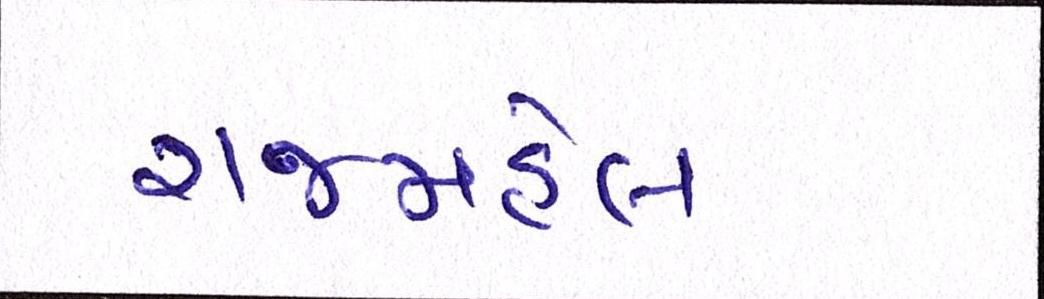 રાજમહેલ